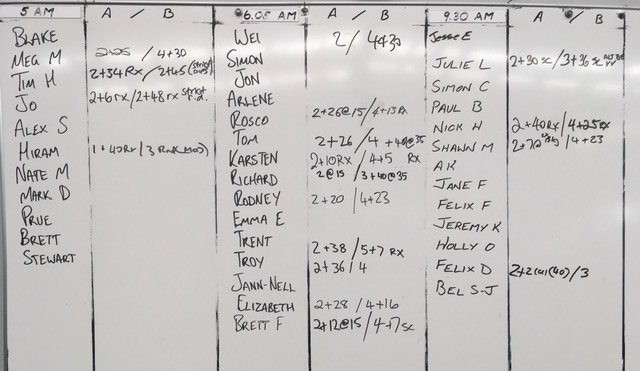 5 AM A / B
BLAKE
MEG M 2+25 / 4+30
TIM H 2+34 RX / 2+45 (strict
JO 2+6 rx / 2+48 rx strict
ALEX S
HIRAM 1+40 Rx / 3 Rx
NATE M
MARK D
PRUE
BRETT
STEWART
6.05 AM A / B
WEI 2 / 4+30
SIMON
JON
ARLENE
ROSCO 2+26@15 / 4+13 RX
TOM 2+26 / 4+40@35
KARSTEN 2+10 RX / 4+5 RX
RICHARD 2@15 / 3+40@35
RODNEY 2+20 / 4+23
EMMA E
TRENT 2+38 / 5+7 RX
TROY 2+36 / 4
JANN-NELL
ELIZABETH 2+28 / 4+16
BRETT F 2+12@15 / 4+7 SC
9.30 AM A / B
Jesse E
JULIE L 2+30 sc / 3+36 sc
SIMON C
PAUL B
NICK H 2+40 RX / 4+25 RX
SHAWN M / 4+23
AK
JANE F
FELIX F
JEREMY K
HOLLY O
FELIX D / 3
BEL S-J